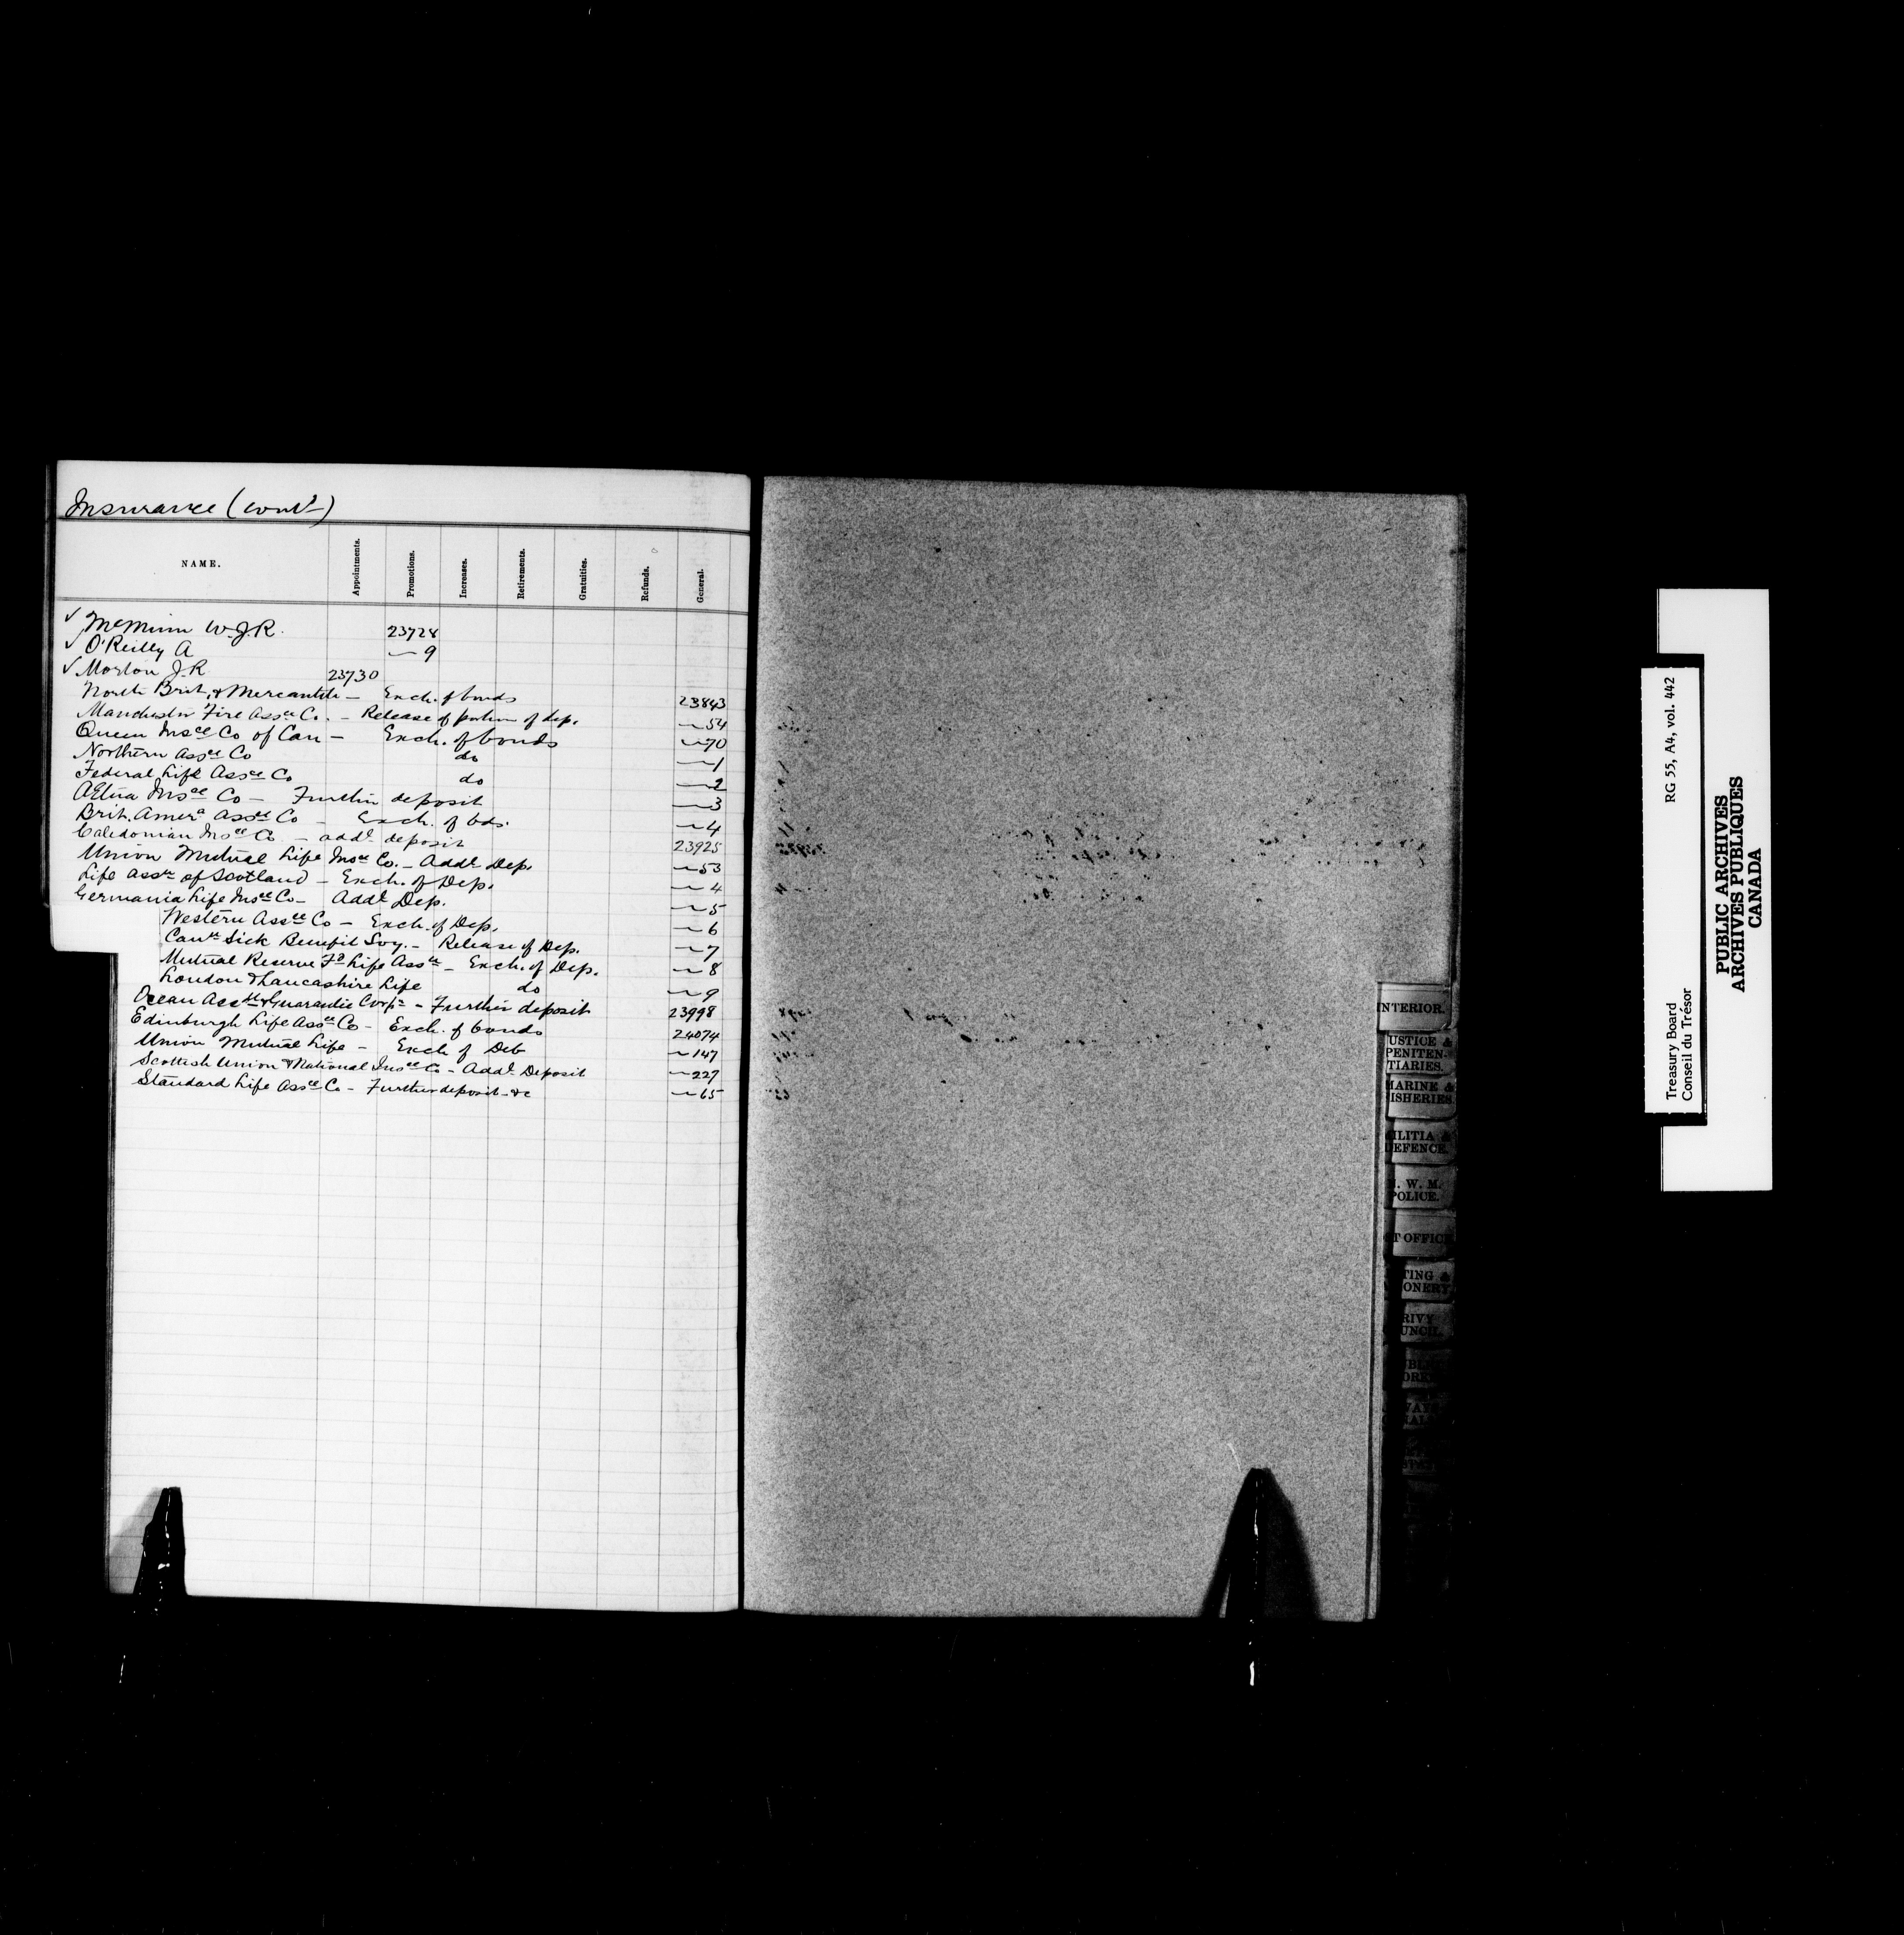 Insurance (cont'd)
NAME. Appointments. Promotions. Increases. Retirements. Gratuities. Refunds. General.
✓ McMinn W.J.R. 23728
✓ O'Reilly A — 9
✓ Morton J.R 23730
North Brit. & Mercantile — Exch. of bonds 23843
Manchester Fire Assce Co. — Release of portion of dep. — 54
Queen Insce Co of Can — Exch. of bonds — 70
Northern Assce Co do — 1
Federal Life Assce Co do — 2
AEtna Insce Co — Further deposit — 3
Brit. Amera Assce Co — Exch. of bds. — 4
Caledonian Insce Co — addl deposit 23925
Union Mutual Life Insce Co. — Addl Dep. — 53
Life Assce of Scotland — Exch. of Dep. — 4
Germania Life Insce Co — Addl Dep. — 5
Western Assce Co — Exch. of Dep. — 6
Cann Sick Benefit Socy. — Release of Dep. — 7
Mutual Reserve Fd Life Assce — Exch. of Dep. — 8
London & Lancashire Life do — 9
Ocean Acct & Guarantee Corpn — Further deposit 23998
Edinburgh Life Assce Co — Exch. of bonds 24074
Union Mutual Life — Exch of Deb — 147
Scottish Union & National Insce Co — Addl Deposit — 227
Standard Life Assce Co — Further deposit &c — 65
INTERIOR.
USTICE &
PENITEN-
TIARIES.
MARINE &
ISHERIES
ILITIA &
DEFENCE.
N. W. M.
POLICE.
T OFFICE
TING &
ONERY
RIVY
UNCIL.
Treasury Board RG 55, A4, vol. 442
Conseil du Trésor
PUBLIC ARCHIVES
ARCHIVES PUBLIQUES
CANADA